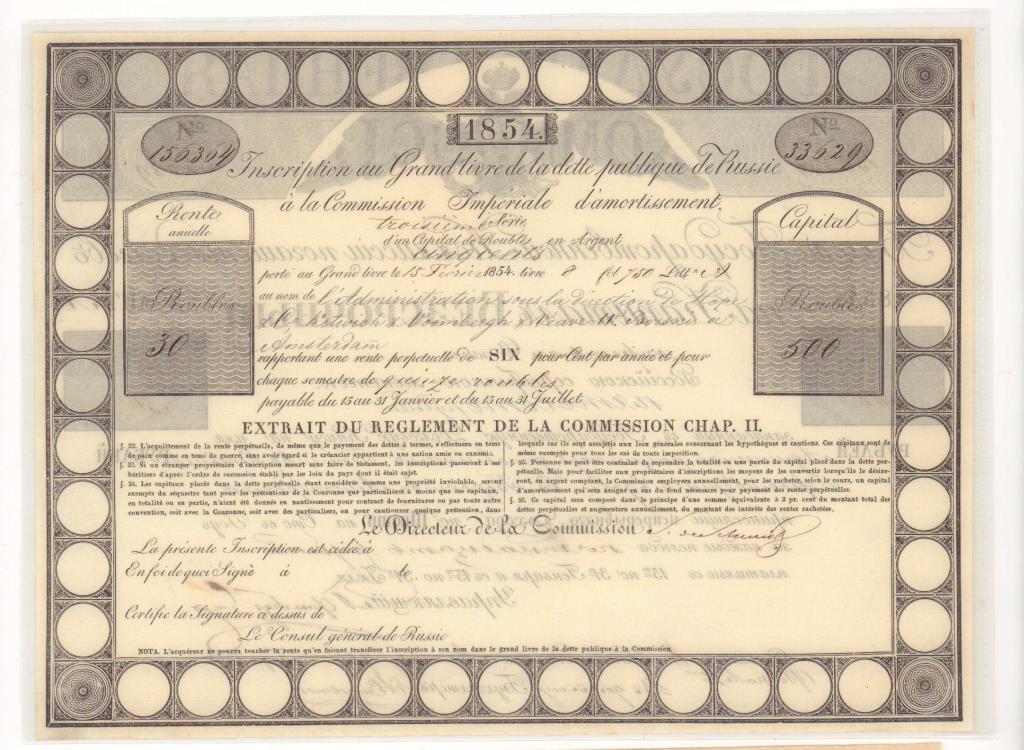 1854.
No 156364
No 33629
Inscription au Grand livre de la dette publique de Russie
à la Commission Impériale d'amortissement.
troisième Série
d'un Capital de Roubles en Argent
cinq cents
porté au Grand livre le 15 Février 1854. livre 8 fol 750 Litt. A
au nom de l'Administration sous la direction de Hope
& Co Ketwich & Voombergh & Veuve W. Borski à
Amsterdam
rapportant une rente perpetuelle de SIX pour Cent par année et pour
chaque semestre de quinze roubles
payable du 15 au 31 Janvier et du 15 au 31 Juillet
Rente
annuelle
Roubles
30
Capital
Roubles
500
EXTRAIT DU REGLEMENT DE LA COMMISSION CHAP. II.
§. 22. L'acquittement de la rente perpétuelle, de même que le payement des dettes à termes, s'effectuera en tems
de paix comme en tems de guerre, sans avoir égard si le créancier appartient à une nation amie ou ennemie.
§. 23. Si un étranger propriétaire d'inscription meurt sans faire de testament, les inscriptions passeront à ses
héritiers d'après l'ordre de succession établi par les loix du pays dont il était sujet.
§. 24. Les capitaux placés dans la dette perpétuelle étant considérés comme une propriété inviolable, seront
exempts du séquestre tant pour les prétentions de la Couronne que particuliers à moins que ses capitaux,
en totalité ou en partie, n'aient été donnés en nantissement pour contract de fournitures ou par toute autre
convention, soit avec la Couronne, soit avec des particuliers, ou pour cautionner quelque prétention, dans
lesquels cas ils sont assujétis aux loix générales concernant les hypothèques et cautions. Ces capitaux sont de
même exemptés pour tous les cas de toute imposition.
§. 25. Personne ne peut être contraint de reprendre la totalité ou une partie du capital placé dans la dette per-
pétuelle. Mais pour faciliter aux propriétaires d'inscriptions les moyens de les convertir lorsqu'ils le désire-
ront, en argent comptant, la Commission employera annuellement, pour les racheter, selon le cours, un capital
d'amortissement qui sera assigné en sus du fond nécessaire pour payement des rentes perpétuelles.
§. 26. Ce capital sera composé dans le principe d'une somme équivalente à 2 pr. cent du montant total des
dettes perpétuelles et augmentera annuellement, du montant des intérêts des rentes rachetées.
Le Directeur de la Commission
La présente Inscription est cédée à
En foi de quoi Signé à le
Certifie la Signature ci dessus de
Le Consul général de Russie
NOTA. L'acquéreur ne pourra toucher la rente qu'en faisant transférer l'inscription à son nom dans le grand livre de la dette publique à la Commission.